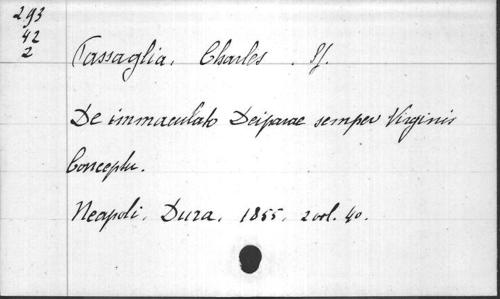 293
42
2
Passaglia, Charles. Sj.
De immaculato Deiparae semper Virginis
Conceptu.
Neapoli, Dura, 1855, 2 vol. 4o.